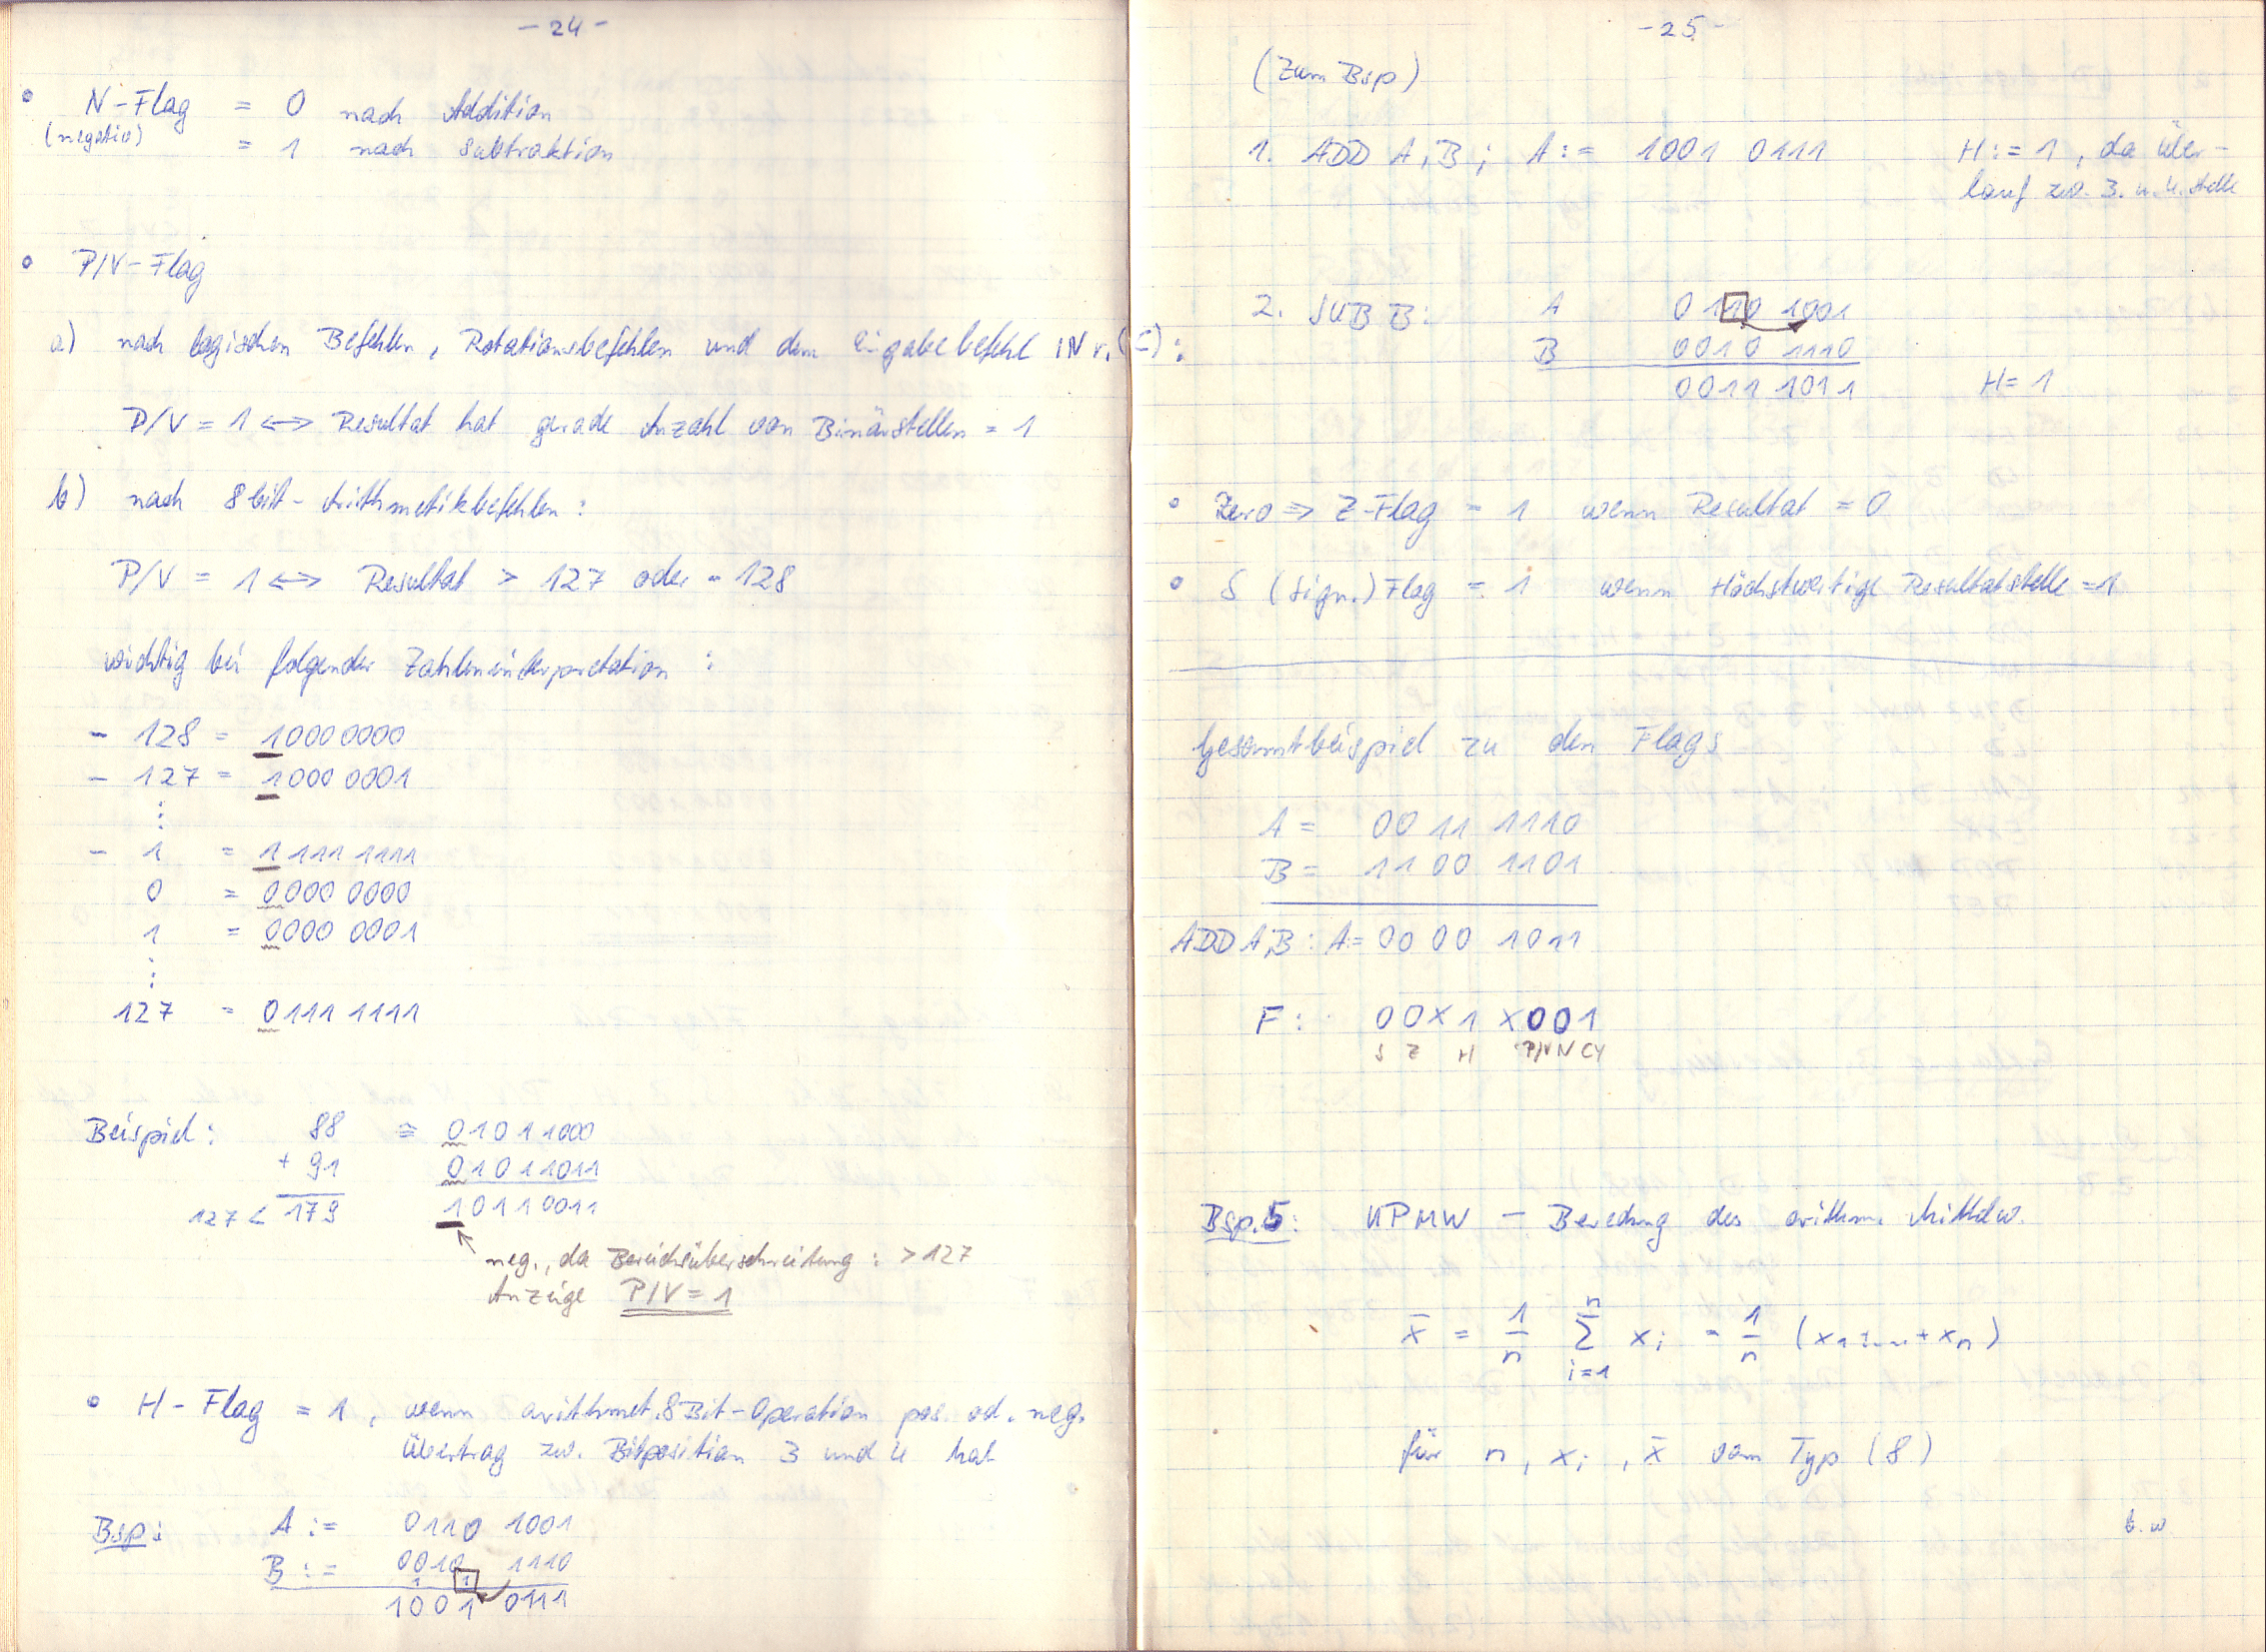 - 24 -
• N-Flag = 0 nach Addition
(negativ) = 1 nach Subtraktion
• P/V-Flag
a) nach logischen Befehlen, Rotationsbefehlen und dem Eingabebefehl IN r,(C):
P/V = 1 <=> Resultat hat gerade Anzahl von Binärstellen = 1
b) nach 8bit-Arithmetikbefehlen:
P/V = 1 <=> Resultat > 127 oder - 128
wichtig bei folgender Zahleninterpretation :
- 128 = 1000 0000
- 127 = 1000 0001
:
- 1 = 1 1111 1111
0 = 0000 0000
1 = 0000 0001
:
127 = 0111 1111
Beispiel: 88 ≙ 01011000
+ 91 01011011
127 < 179 10110011
neg., da Bereichsüberschreitung : > 127
Anzeige P/V = 1
• H-Flag = 1, wenn arithmet. 8Bit-Operation pos. od. neg.
Übertrag zw. Bitposition 3 und 4 hat
Bsp: A := 0110 1001
B := 0010 1110
1 1
1001 0111
- 25 -
(Zum Bsp)
1. ADD A,B ; A := 1001 0111 H := 1, da über-
lauf zw. 3. u. 4. Stelle
2. SUB B: A 0110 1001
B 0010 1110
0011 1011 H = 1
• Zero => Z-Flag = 1 wenn Resultat = 0
• S (Sign.) Flag = 1 wenn Höchstwertige Resultatstelle = 1
Gesamtbeispiel zu den Flags
A = 0011 1110
B = 1100 1101
ADD A,B : A = 0000 1011
F: 00X1 X001
S Z H P/V N CY
Bsp. 5: UPMW - Berechng des arithm. Mittelw.
x̄ = 1/n n∑i=1 xi = 1/n (x1+...+xn)
für n, xi, x̄ vom Typ (8)
b.w.